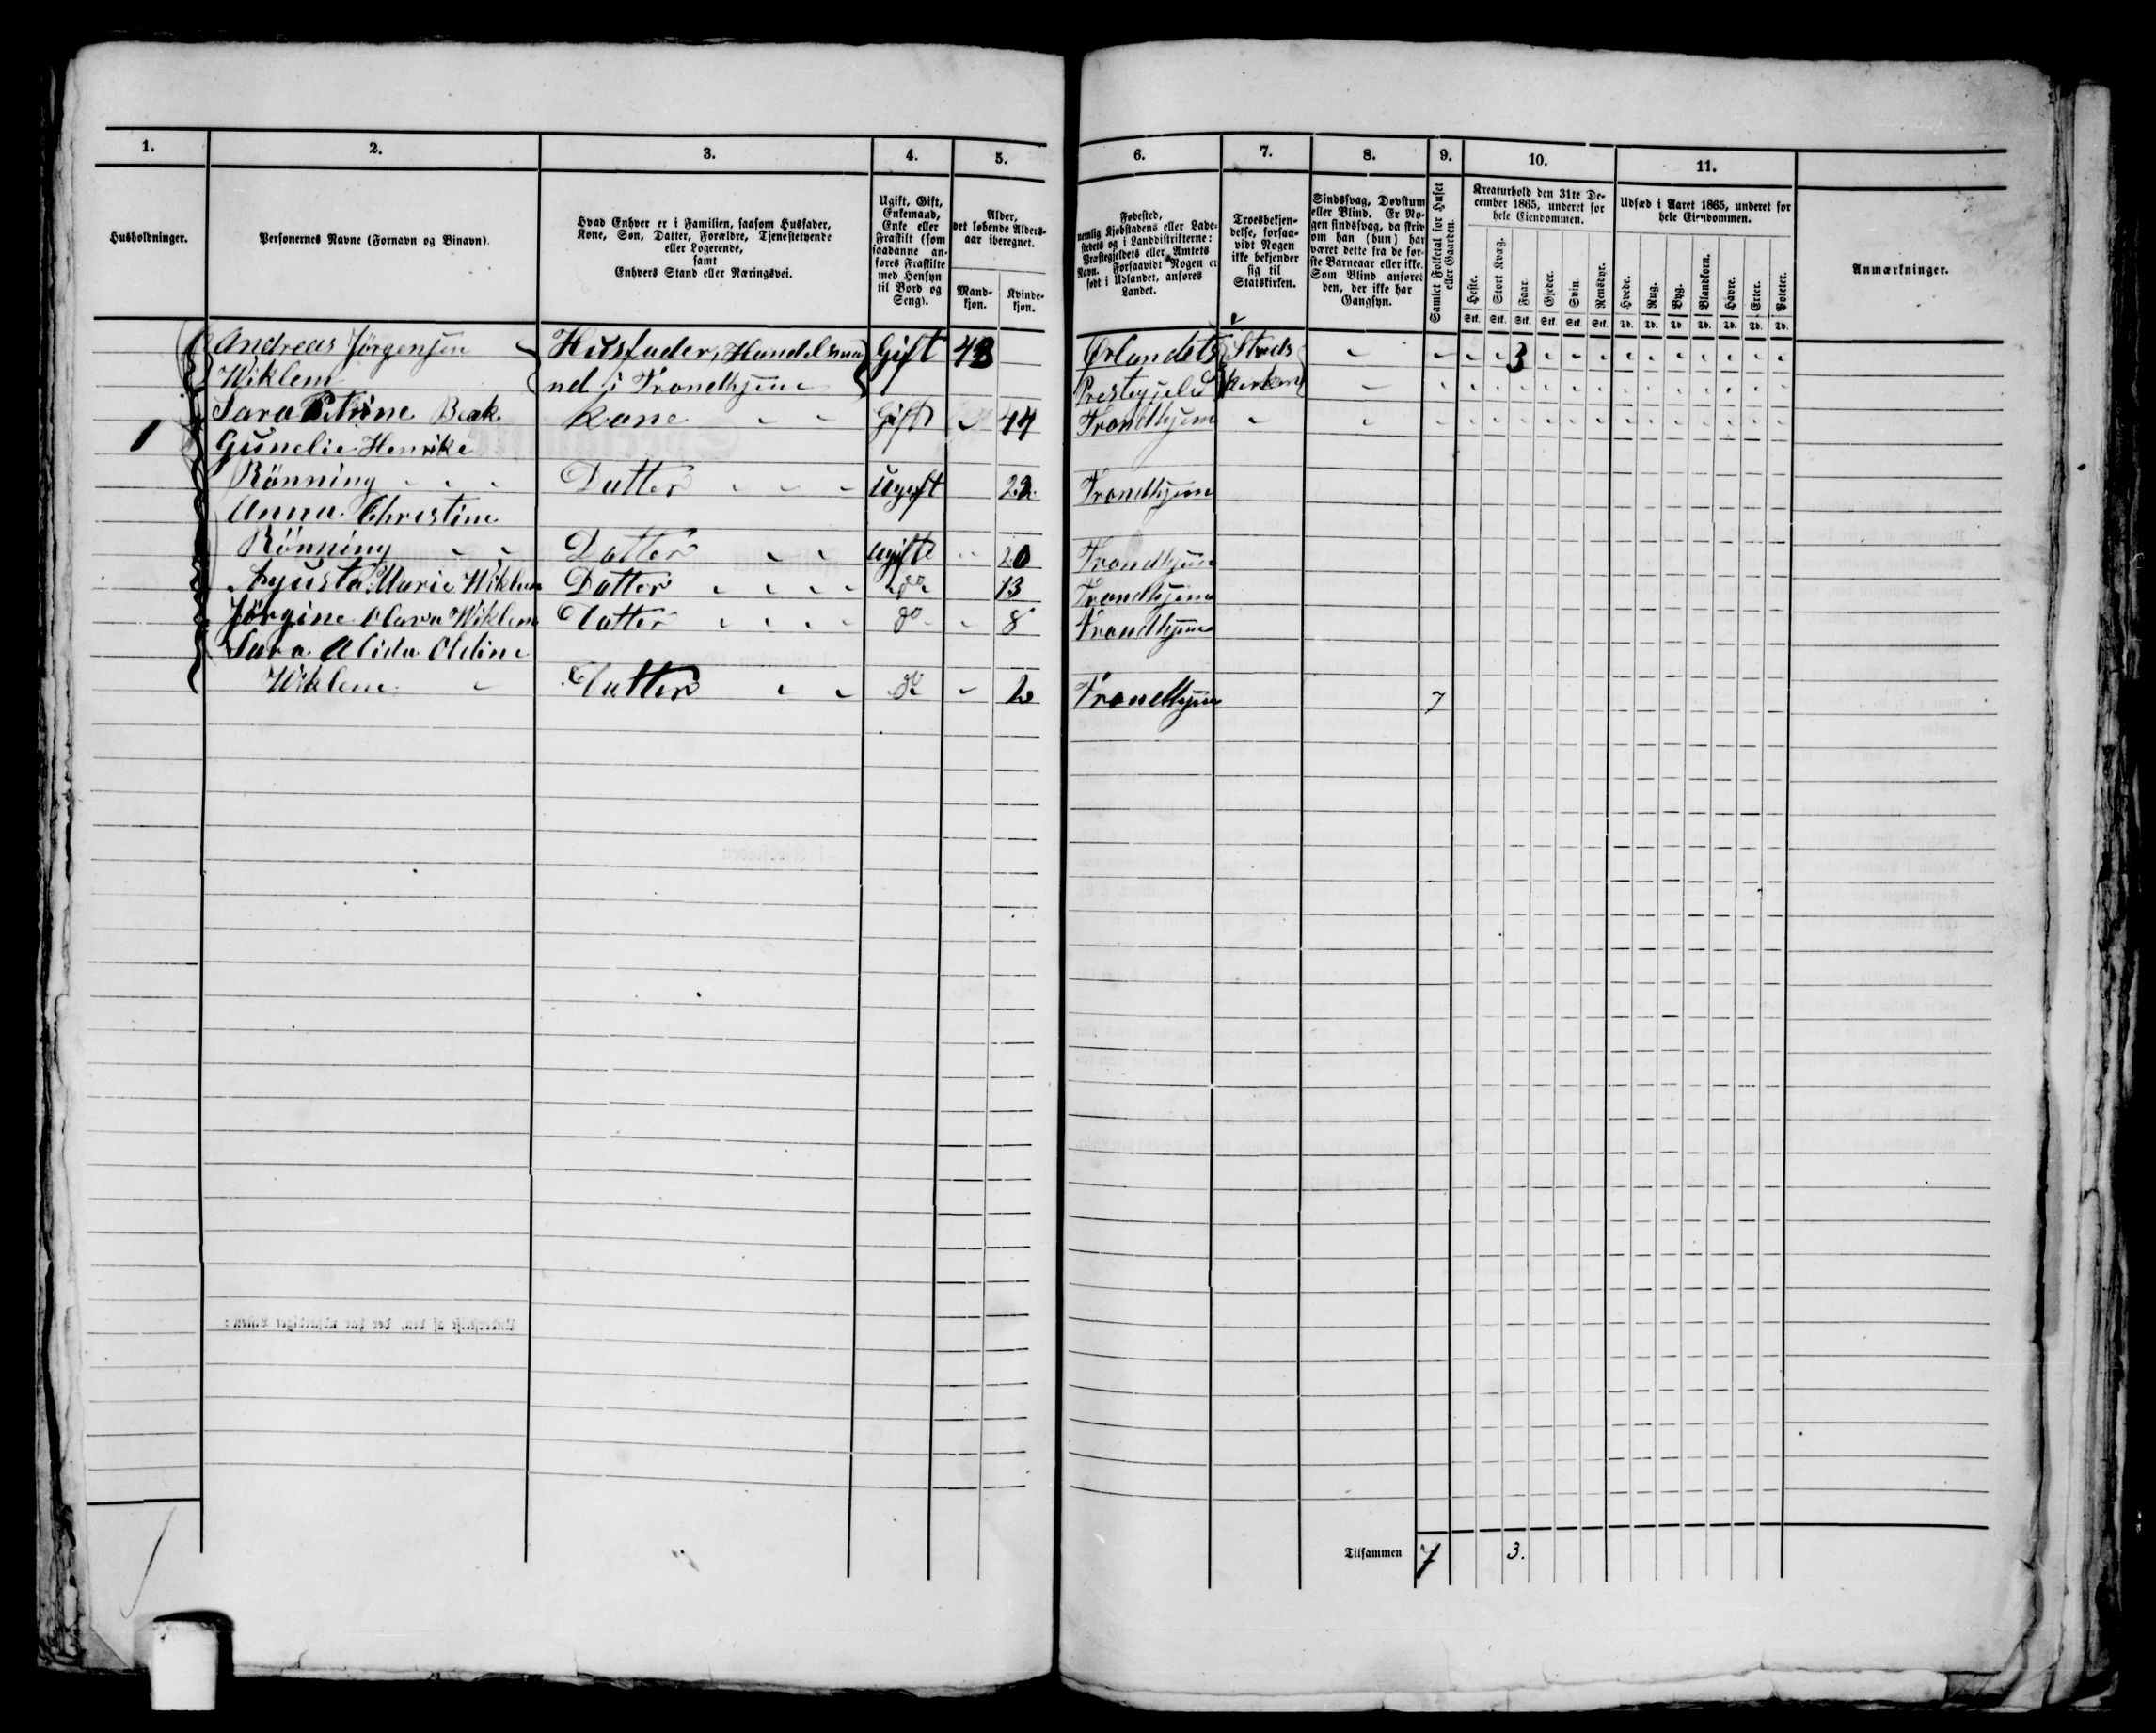 1. 2. 3. 4. 5. 6. 7. 8. 9. 10. 11.
Husholdninger.
Personernes Navne (Fornavn og Binavn).
Hvad Enhver er i Familien, saasom Husfader,
Kone, Søn, Datter, Forældre, Tjenestetyende
eller Logerende,
samt
Enhvers Stand eller Næringsvei.
Ugift, Gift,
Enkemand,
Enke eller
Fraskilt (som
saadanne an-
føres Fraskilte
med Hensyn
til Bord og
Seng).
Alder,
det løbende Alders-
aar iberegnet.
Mand-
kjøn.
Kvinde-
kjøn.
Fødested,
nemlig Kjøbstadens eller Lade-
stedets og i Landdistrikterne:
Præstegjeldets eller Amtets
Navn. Forsaavidt Nogen er
født i Udlandet, anføres
Landet.
Troesbekjen-
delse, forsaa-
vidt Nogen
ikke bekjender
sig til
Statskirken.
Sindssvag, Døvstum
eller Blind. Er No-
gen sindssvag, da skriv
om han (hun) har
været dette fra de før-
ste Barneaar eller ikke.
Som Blind anføres
den, der ikke har
Gangsyn.
Samlet Folketal for Huset
eller Gaarden.
Kreaturhold den 31te De-
cember 1865, underet for
hele Eiendommen.
Heste. Stort Kvæg. Faar. Gjeder. Svin. Rensdyr.
Stk. Stk. Stk. Stk. Stk. Stk.
Udsæd i Aaret 1865, underet for
hele Eiendommen.
Hvede. Rug. Byg. Blandkorn. Havre. Erter. Poteter.
Td. Td. Td. Td. Td. Td. Td.
Anmærkninger.
Andreas Jörgensen Husfader, Handelsma Gift 43 Ørlandets Stads 3
Wiklem nd i Trondhjem Prestegjeld Kirken
Sara Petrine Beck Kone Gift 44 Trondhjem
1 Gunelie Henrike
Rönning Datter Ugift 23 Trondhjem
Anna Christine
Rönning Datter Ugifte 20 Trondhjem
Agusta Marie Wiklem Datter do 13 Trondhjem
Jörgine Olava Wiklem Datter do 8 Trondhjem
Sara Alida Oldine
Wiklem Datter do 2 Trondhjem 7
Tilsammen 7 3.